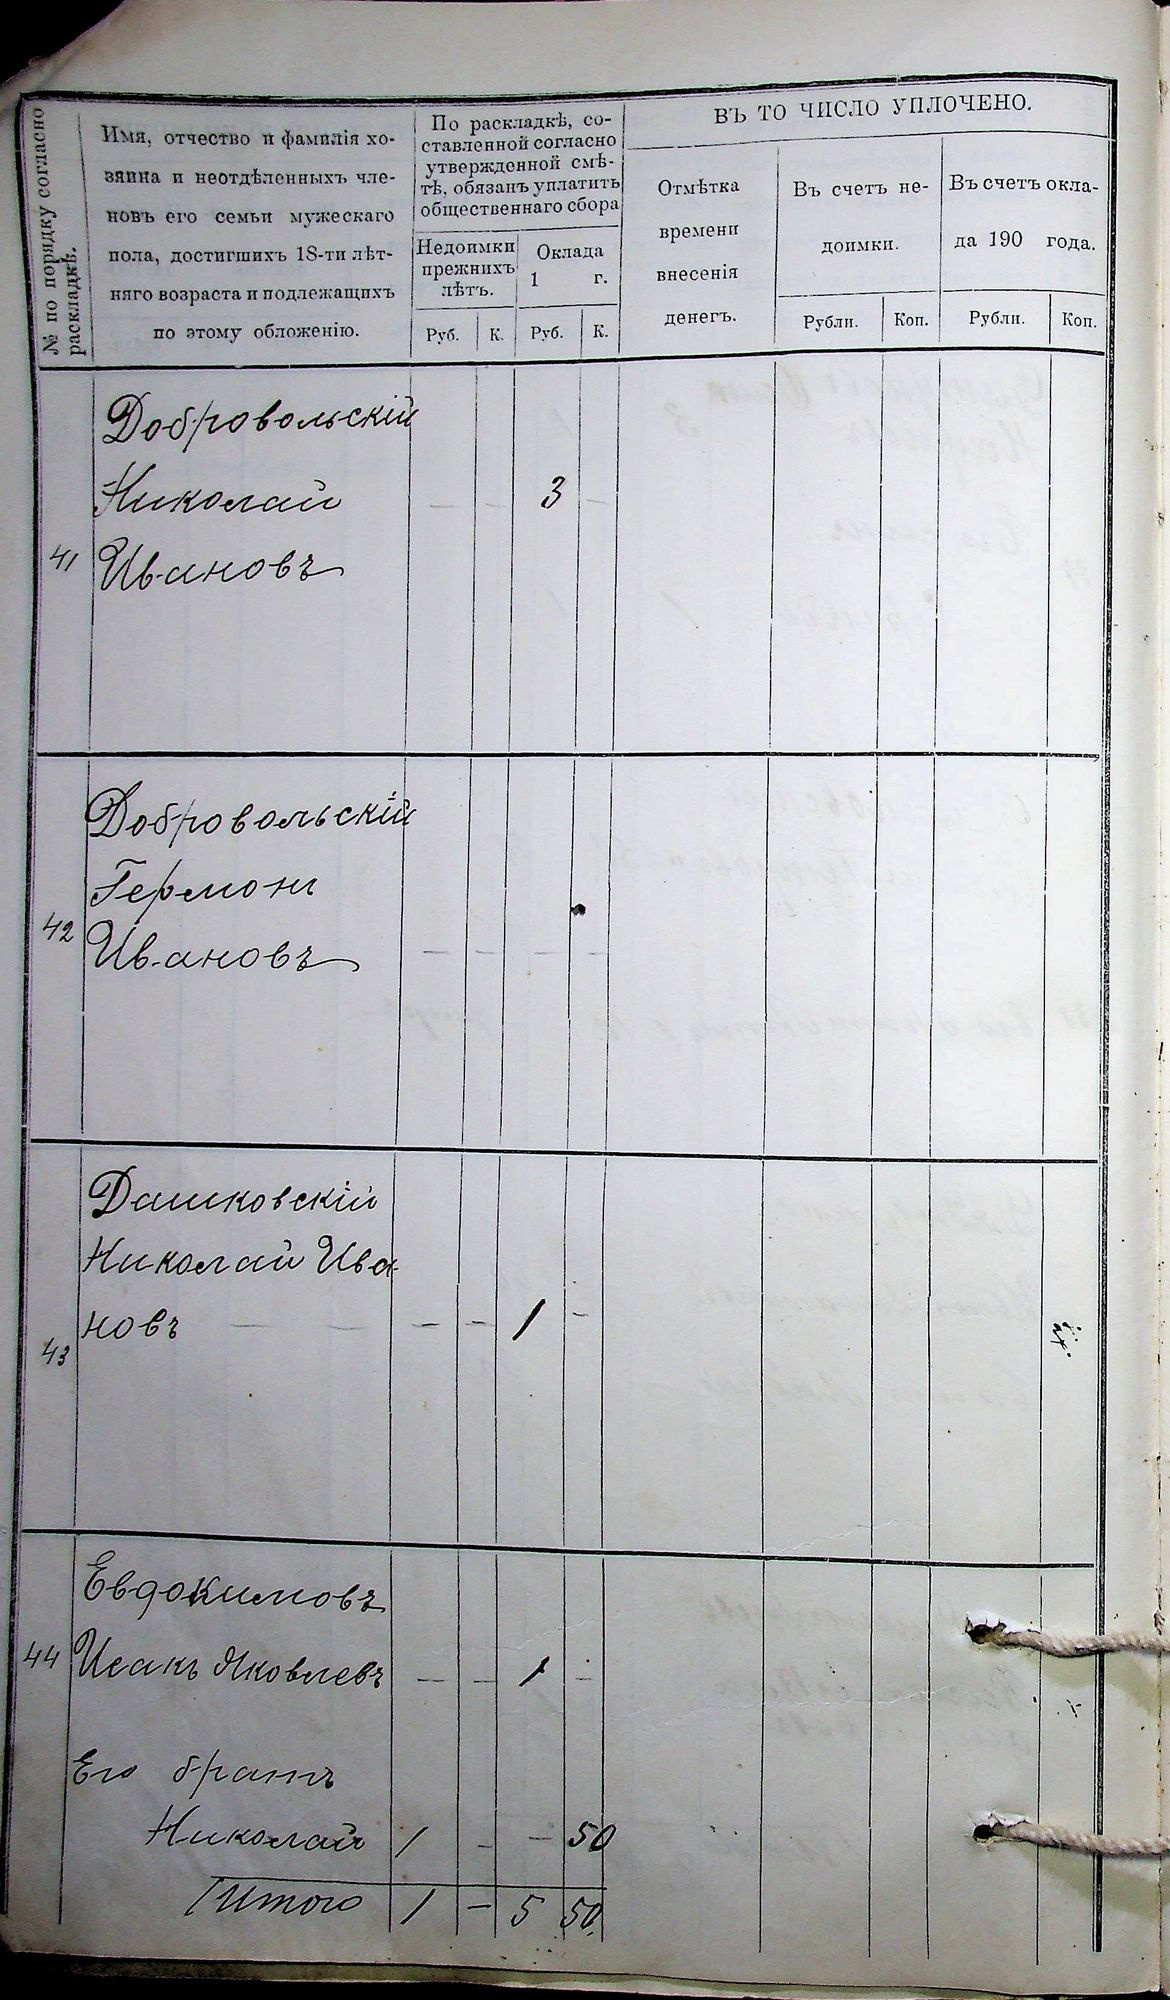 № по порядку согласно
раскладкѣ.
Имя, отчество и фамилія хо-
зяина и неотдѣленныхъ чле-
новъ его семьи мужескаго
пола, достигшихъ 18-ти лѣт-
няго возраста и подлежащихъ
по этому обложенію.
По раскладкѣ, со-
ставленной согласно
утвержденной смѣ-
тѣ, обязанъ уплатить
общественнаго сбора
Недоимки
прежнихъ
лѣтъ.
Оклада
1 г.
Руб. К. Руб. К.
ВЪ ТО ЧИСЛО УПЛОЧЕНО.
Отмѣтка
времени
внесенія
денегъ.
Въ счетъ не-
доимки.
Рубли. Коп.
Въ счетъ окла-
да 190 года.
Рубли. Коп.
Добровольскій
Николай — — 3 —
41 Ивановъ
Добровольскій
Гермонъ
42 Ивановъ — — — —
Дашковскій
Николай Ива
новъ — — — — 1 —
43
Евдокимовъ
44 Исакъ Яковлевъ — — 1 —
Его братъ
Николай 1 — — 50
Итого 1 — 5 50